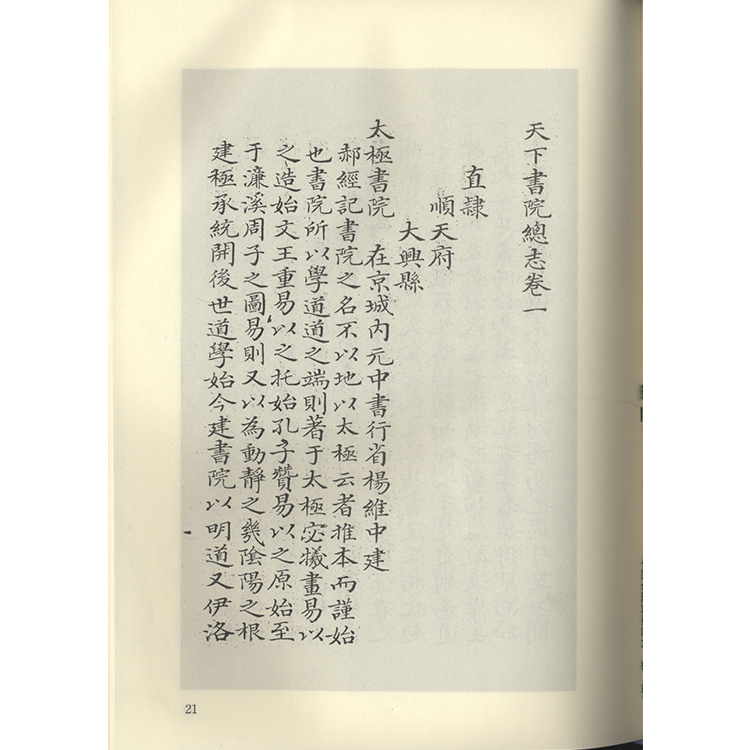 天下書院總志卷一
直隸
順天府
大興縣
太極書院 在京城內元中書行省楊維中建
郝經記書院之名不以地以太極云者推本而謹始
也書院所以學道道之端則著于太極宓犧畫易以
之造始文王重易以之托始孔子贊易以之原始至
于濂溪周子之圖易則又以為動靜之幾陰陽之根
建極承統開後世道學始今建書院以明道又伊洛
21